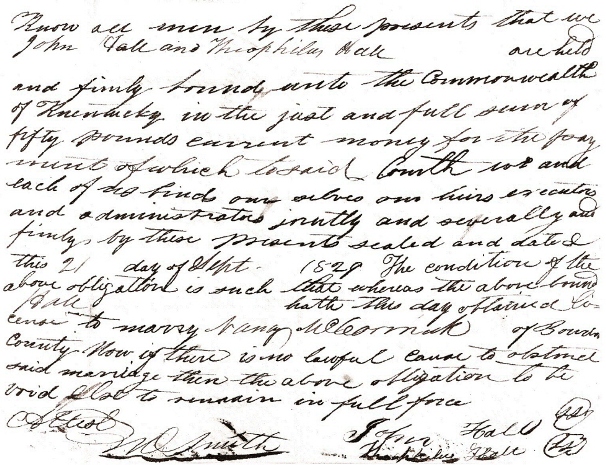 Know all men by these presents that we
John Hall and Theophilus Hall are held
and firmly bound unto the Commonwealth
of Kentucky in the just and full sum of
fifty pounds current money for the pay
ment of which to said Comth we and
each of us binds our selves our heirs executors
and administrators jointly and severally and
firmly by these presents sealed and dated
this 21 day of Sept. 1829 The condition of the
above obligation is such that whereas the above bound
Hall hath this day obtained li-
cense to marry Nancy McCormick of Bourbn
County Now if there is no lawful cause to obstruct
said marriage then the above obligation to be
void else to remain in full force
Attest
Smith John Hall
Theophilus Hall